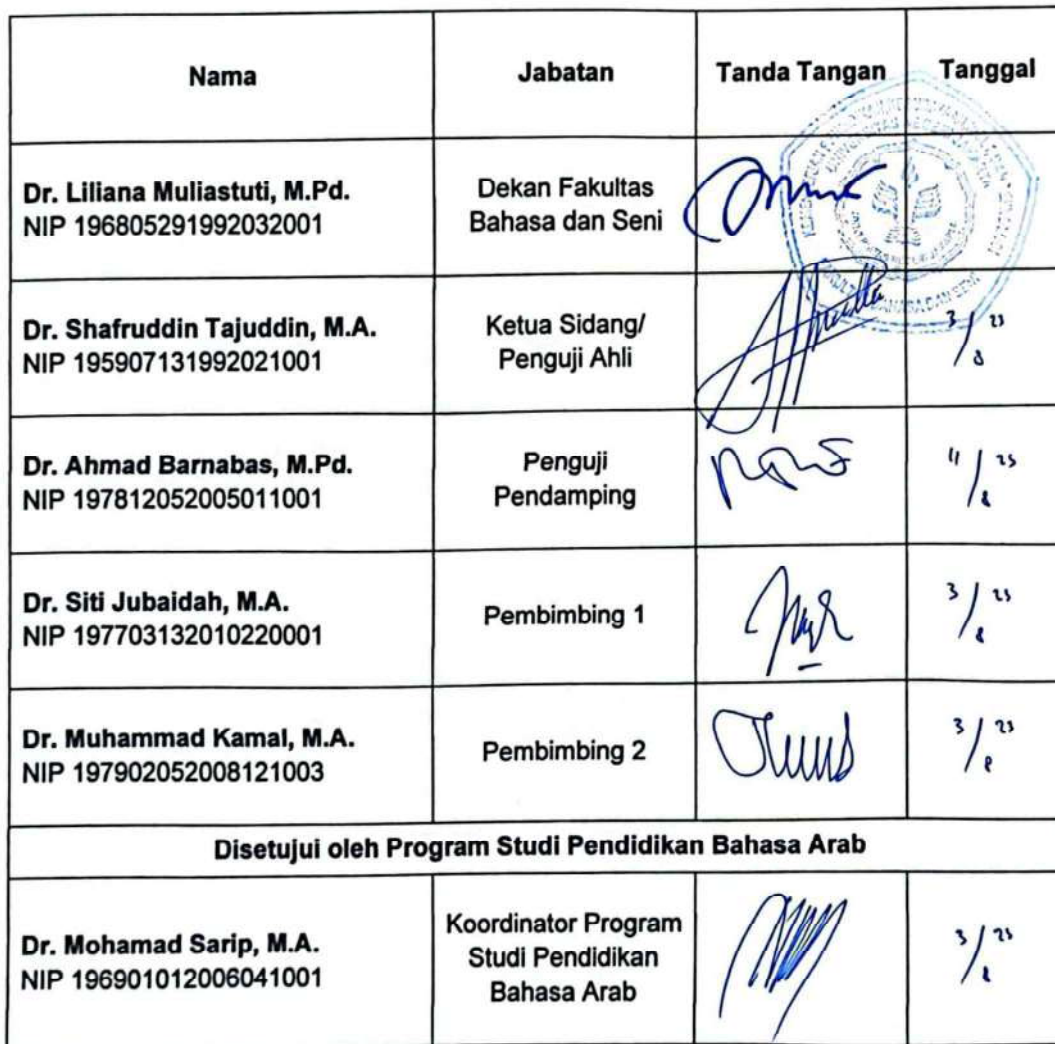 Nama Jabatan Tanda Tangan Tanggal
Dr. Liliana Muliastuti, M.Pd.
NIP 196805291992032001
Dekan Fakultas
Bahasa dan Seni
Dr. Shafruddin Tajuddin, M.A.
NIP 195907131992021001
Ketua Sidang/
Penguji Ahli
3/8 23
Dr. Ahmad Barnabas, M.Pd.
NIP 197812052005011001
Penguji
Pendamping
11/8 23
Dr. Siti Jubaidah, M.A.
NIP 197703132010220001
Pembimbing 1
3/8 23
Dr. Muhammad Kamal, M.A.
NIP 197902052008121003
Pembimbing 2
3/8 23
Disetujui oleh Program Studi Pendidikan Bahasa Arab
Dr. Mohamad Sarip, M.A.
NIP 196901012006041001
Koordinator Program
Studi Pendidikan
Bahasa Arab
3/8 23